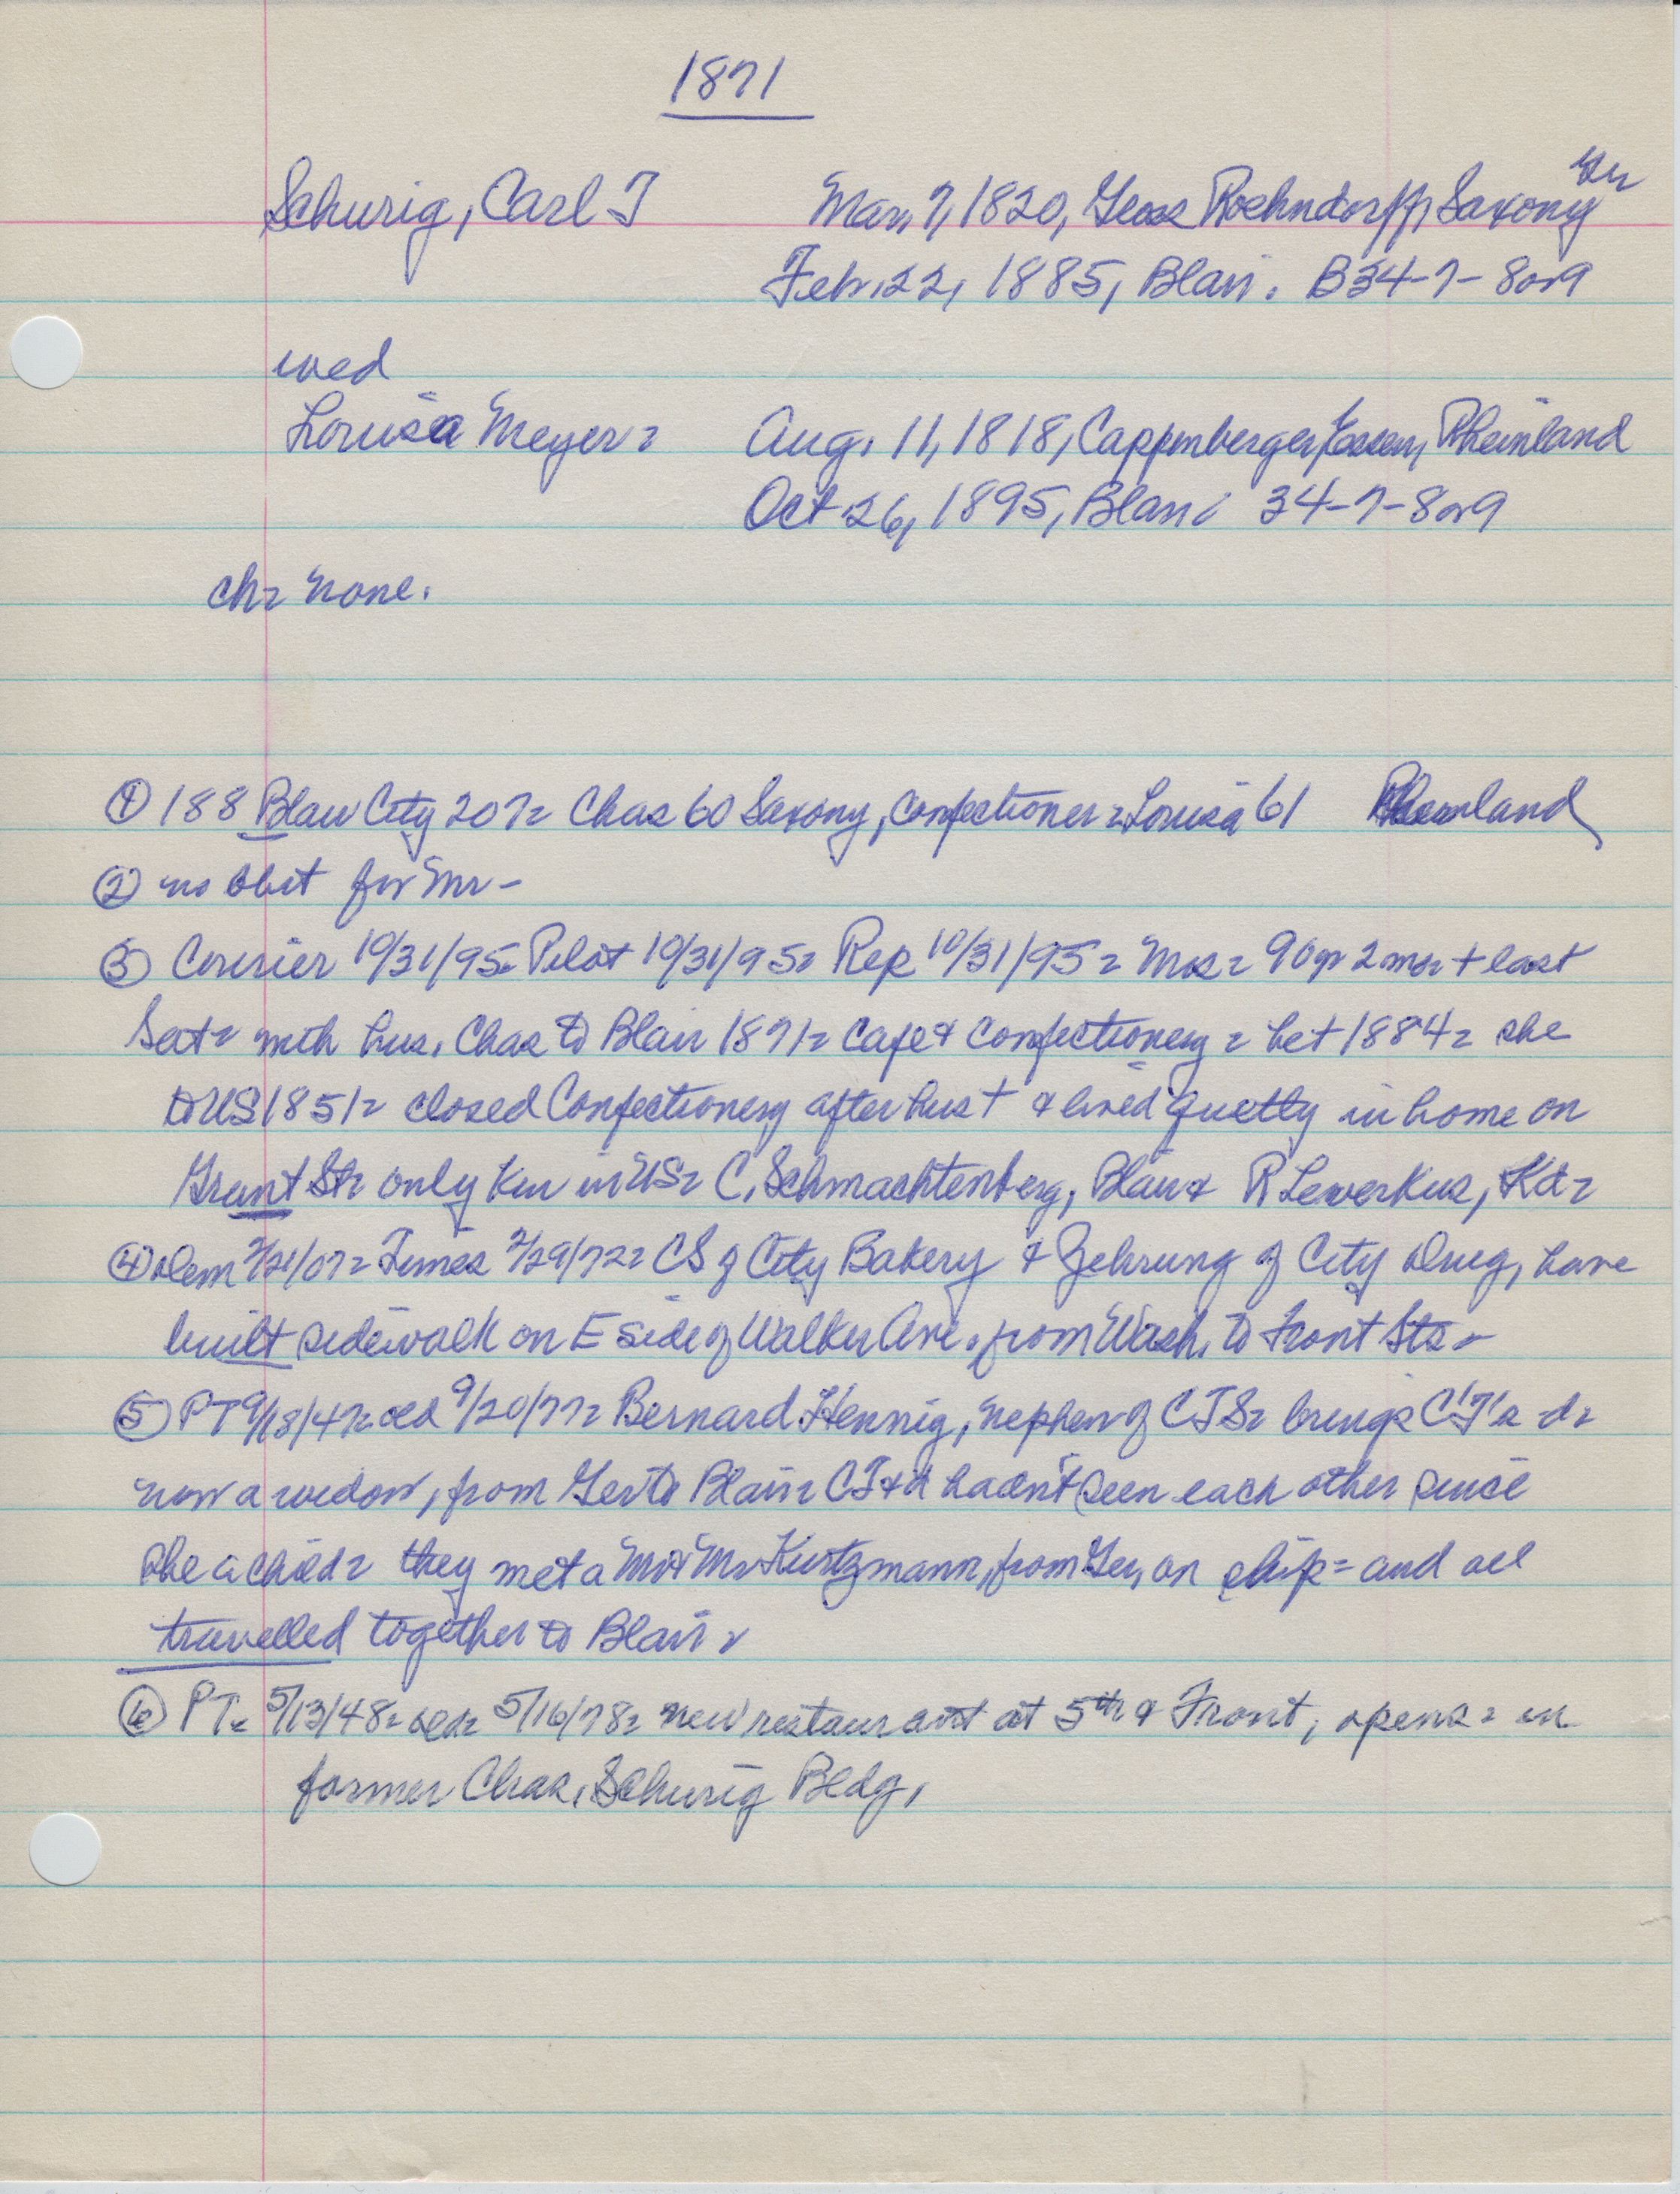 1871
Schurig, Carl T Mar, 7, 1820, Gross Roehndorff, Saxony Ger
Feb. 22, 1885, Blair. B34-7-8or9
wed
Louisa Meyer= Aug. 11, 1818, Cappenberger, Essen, Rheinland
Oct 26, 1895, Blair 34-7-8or9
ch= none.
① 188 Blair City 207= Chas 60 Saxony, confectioner = Louisa 61 Rheinland
② no obit for Mr-
③ Courier 10/31/95= Pilot 10/31/95= Rep 10/31/95= Mrs= 2 mo= + last
Sat= with hus. Chas to Blair 1871= Cafe & Confectionery = bet 1884= she
to US 1851= closed Confectionery after hus + & lived quetly in home on
Grant St= only kin in US= C. Schmachtenberg, Blair & R Leverkus,
④ Dem Times 2/29/72= CS of City Bakery & Gehrung of City Drug, have
built sidewalk on E side of Walker Ave. from Wash. to Front Sts-
⑤ PT 9/18/47= old 9/20/77= Bernard Hennig, nephew of CTS= brings CT's d=
now a widow, from Ger to Blair= CT & d hadn't seen each other since
she a child= they met a Mr & Mr Kurtzmann, from Ger, on ship= and all
travelled together to Blair=
⑥ PT= 5/13/48= old= 5/16/78= new restaurant at 5th & Front, opens= in
former Chas. Schurig Bldg.